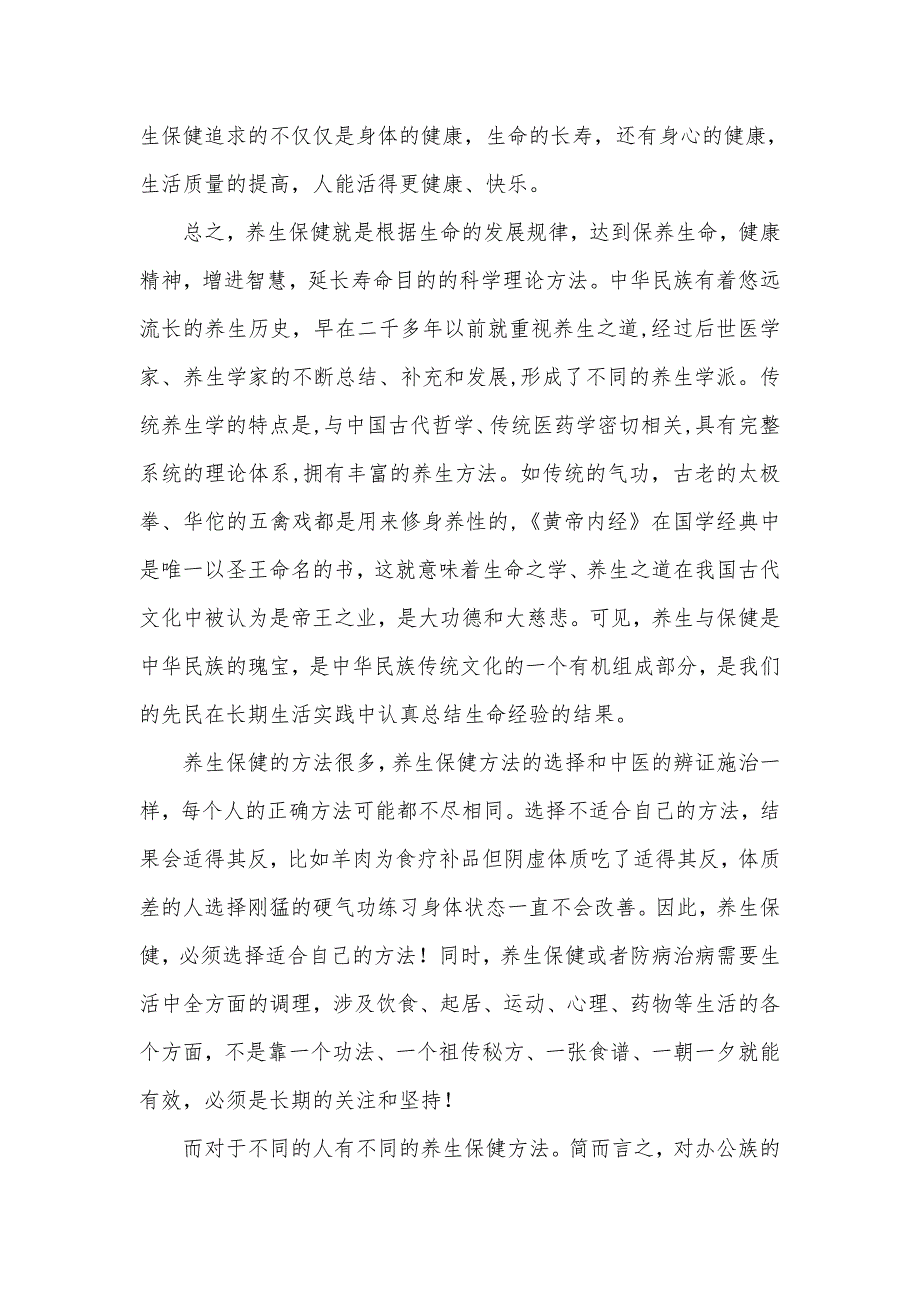 生保健追求的不仅仅是身体的健康，生命的长寿，还有身心的健康，
生活质量的提高，人能活得更健康、快乐。
总之，养生保健就是根据生命的发展规律，达到保养生命，健康
精神，增进智慧，延长寿命目的的科学理论方法。中华民族有着悠远
流长的养生历史，早在二千多年以前就重视养生之道,经过后世医学
家、养生学家的不断总结、补充和发展,形成了不同的养生学派。传
统养生学的特点是,与中国古代哲学、传统医药学密切相关,具有完整
系统的理论体系,拥有丰富的养生方法。如传统的气功，古老的太极
拳、华佗的五禽戏都是用来修身养性的,《黄帝内经》在国学经典中
是唯一以圣王命名的书，这就意味着生命之学、养生之道在我国古代
文化中被认为是帝王之业，是大功德和大慈悲。可见，养生与保健是
中华民族的瑰宝，是中华民族传统文化的一个有机组成部分，是我们
的先民在长期生活实践中认真总结生命经验的结果。
养生保健的方法很多，养生保健方法的选择和中医的辨证施治一
样，每个人的正确方法可能都不尽相同。选择不适合自己的方法，结
果会适得其反，比如羊肉为食疗补品但阴虚体质吃了适得其反，体质
差的人选择刚猛的硬气功练习身体状态一直不会改善。因此，养生保
健，必须选择适合自己的方法！同时，养生保健或者防病治病需要生
活中全方面的调理，涉及饮食、起居、运动、心理、药物等生活的各
个方面，不是靠一个功法、一个祖传秘方、一张食谱、一朝一夕就能
有效，必须是长期的关注和坚持！
而对于不同的人有不同的养生保健方法。简而言之，对办公族的